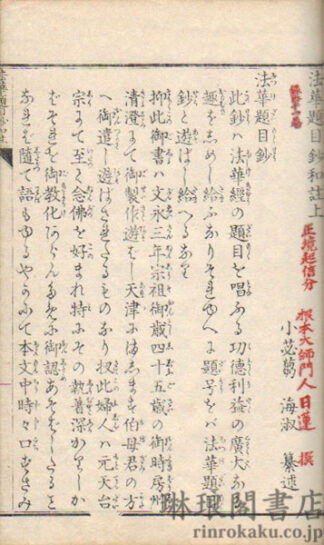 法華題目鈔和註上
正境起信分
根本大師門人日蓮 撰
小苾蒭 海淑 纂述
法華題目鈔
此鈔ハ法華經の題目を唱ふる功德利益の廣大なる
趣をしめし給ふなりそれゆへに題号をバ法華題目
鈔と遊ばし給へるなり
抑此御書ハ文永三年宗祖御歳四十五歳の御時房州
清澄にて御製作遊ばし天津におはします伯母君の方
へ御遣し遊ばされたるものなり扨此婦人ハ元天台
宗にて至て念佛を好まれ特にその執着深かりしか
ばそれを御教化
隨て語も
にて本文中時々口
琳琅閣書店
rinrokaku.co.jp